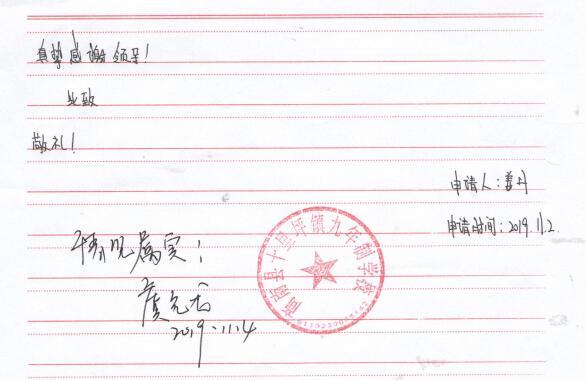 真挚感谢领导！
此致
敬礼！
申请人：姜丹
申请时间：2019.11.2
情况属实！
商南县十里坪镇九年制学校
2019.11.4